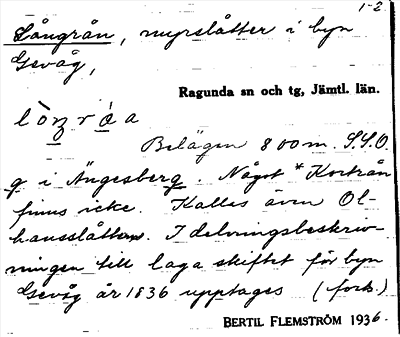 1-2.
Långrån, myrslåtter i byn
Gevåg,
Ragunda sn och tg, Jämtl. län.
lòŋráa
Belägen 800 m. S.S.O.
g i Ängesberg. Något *Kortrån
finns icke. Kallas även Ol-
hansslåtten. I delningsbeskriv-
ningen till laga skiftet för byn
Gevåg år 1836 upptages (forts.)
BERTIL FLEMSTRÖM 1936.